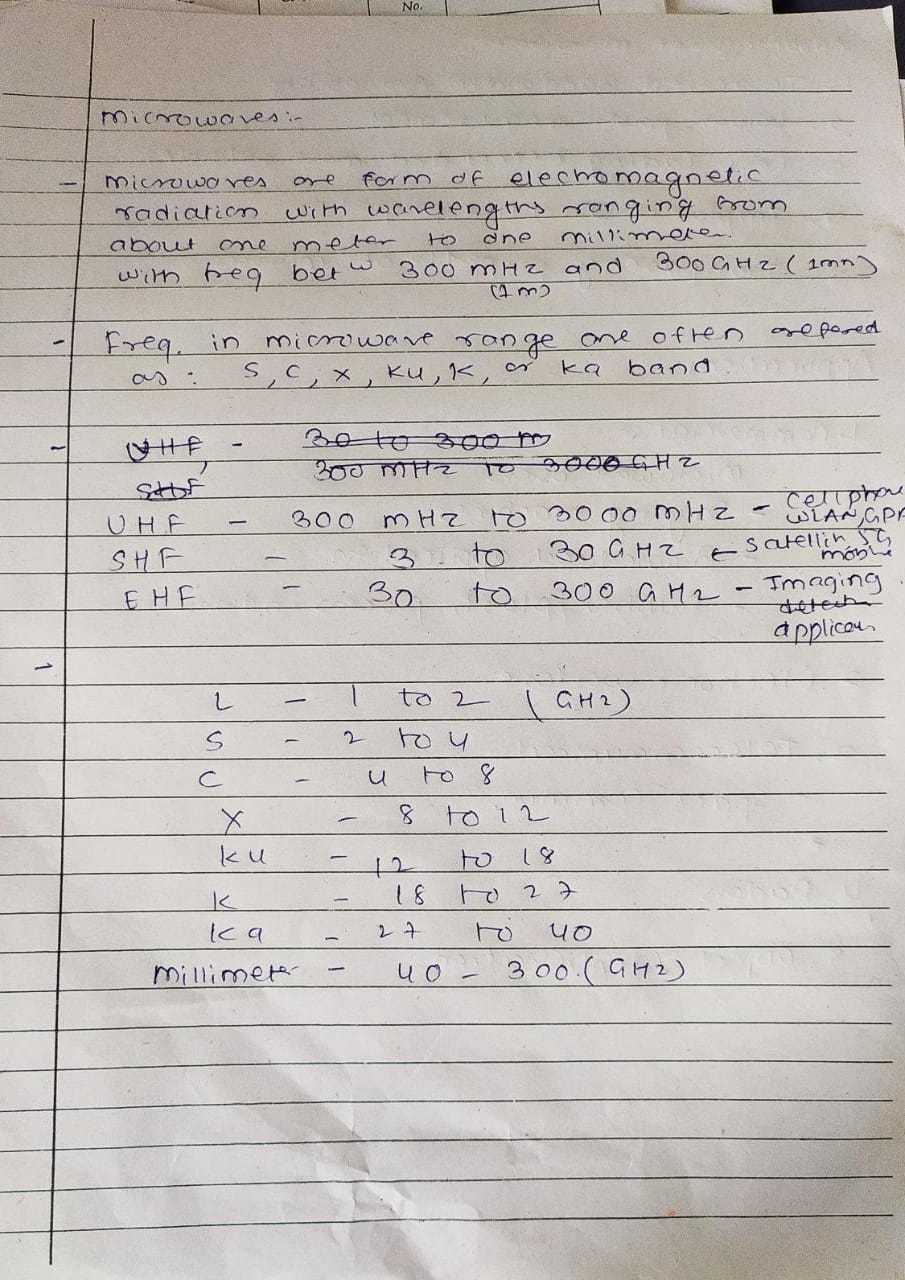 No.
microwaves:-
- microwaves are form of electromagnetic
radiation with wavelengths ranging from
about one meter to one millimeter.
with freq betw 300 mHz and 300 GHz (1mm)
(1m)
- Freq. in microwave range are often
as : S, C, X, Ku, K, or Ka band.
- VHF, - 30 to 300 m
SHF 300 mHz to 3000 GHz
UHF - 300 mHz to 3000 mHz - cellphone
WLAN, GPR
SHF - 3 to 30 GHz - Satellite, 5G
mobile
EHF - 30 to 300 GHz - Imaging
detech
applicen
-
L - 1 to 2 (GHz)
S - 2 to 4
C - 4 to 8
X - 8 to 12
Ku - 12 to 18
K - 18 to 27
Ka - 27 to 40
millimeter - 40 - 300. (GHz)